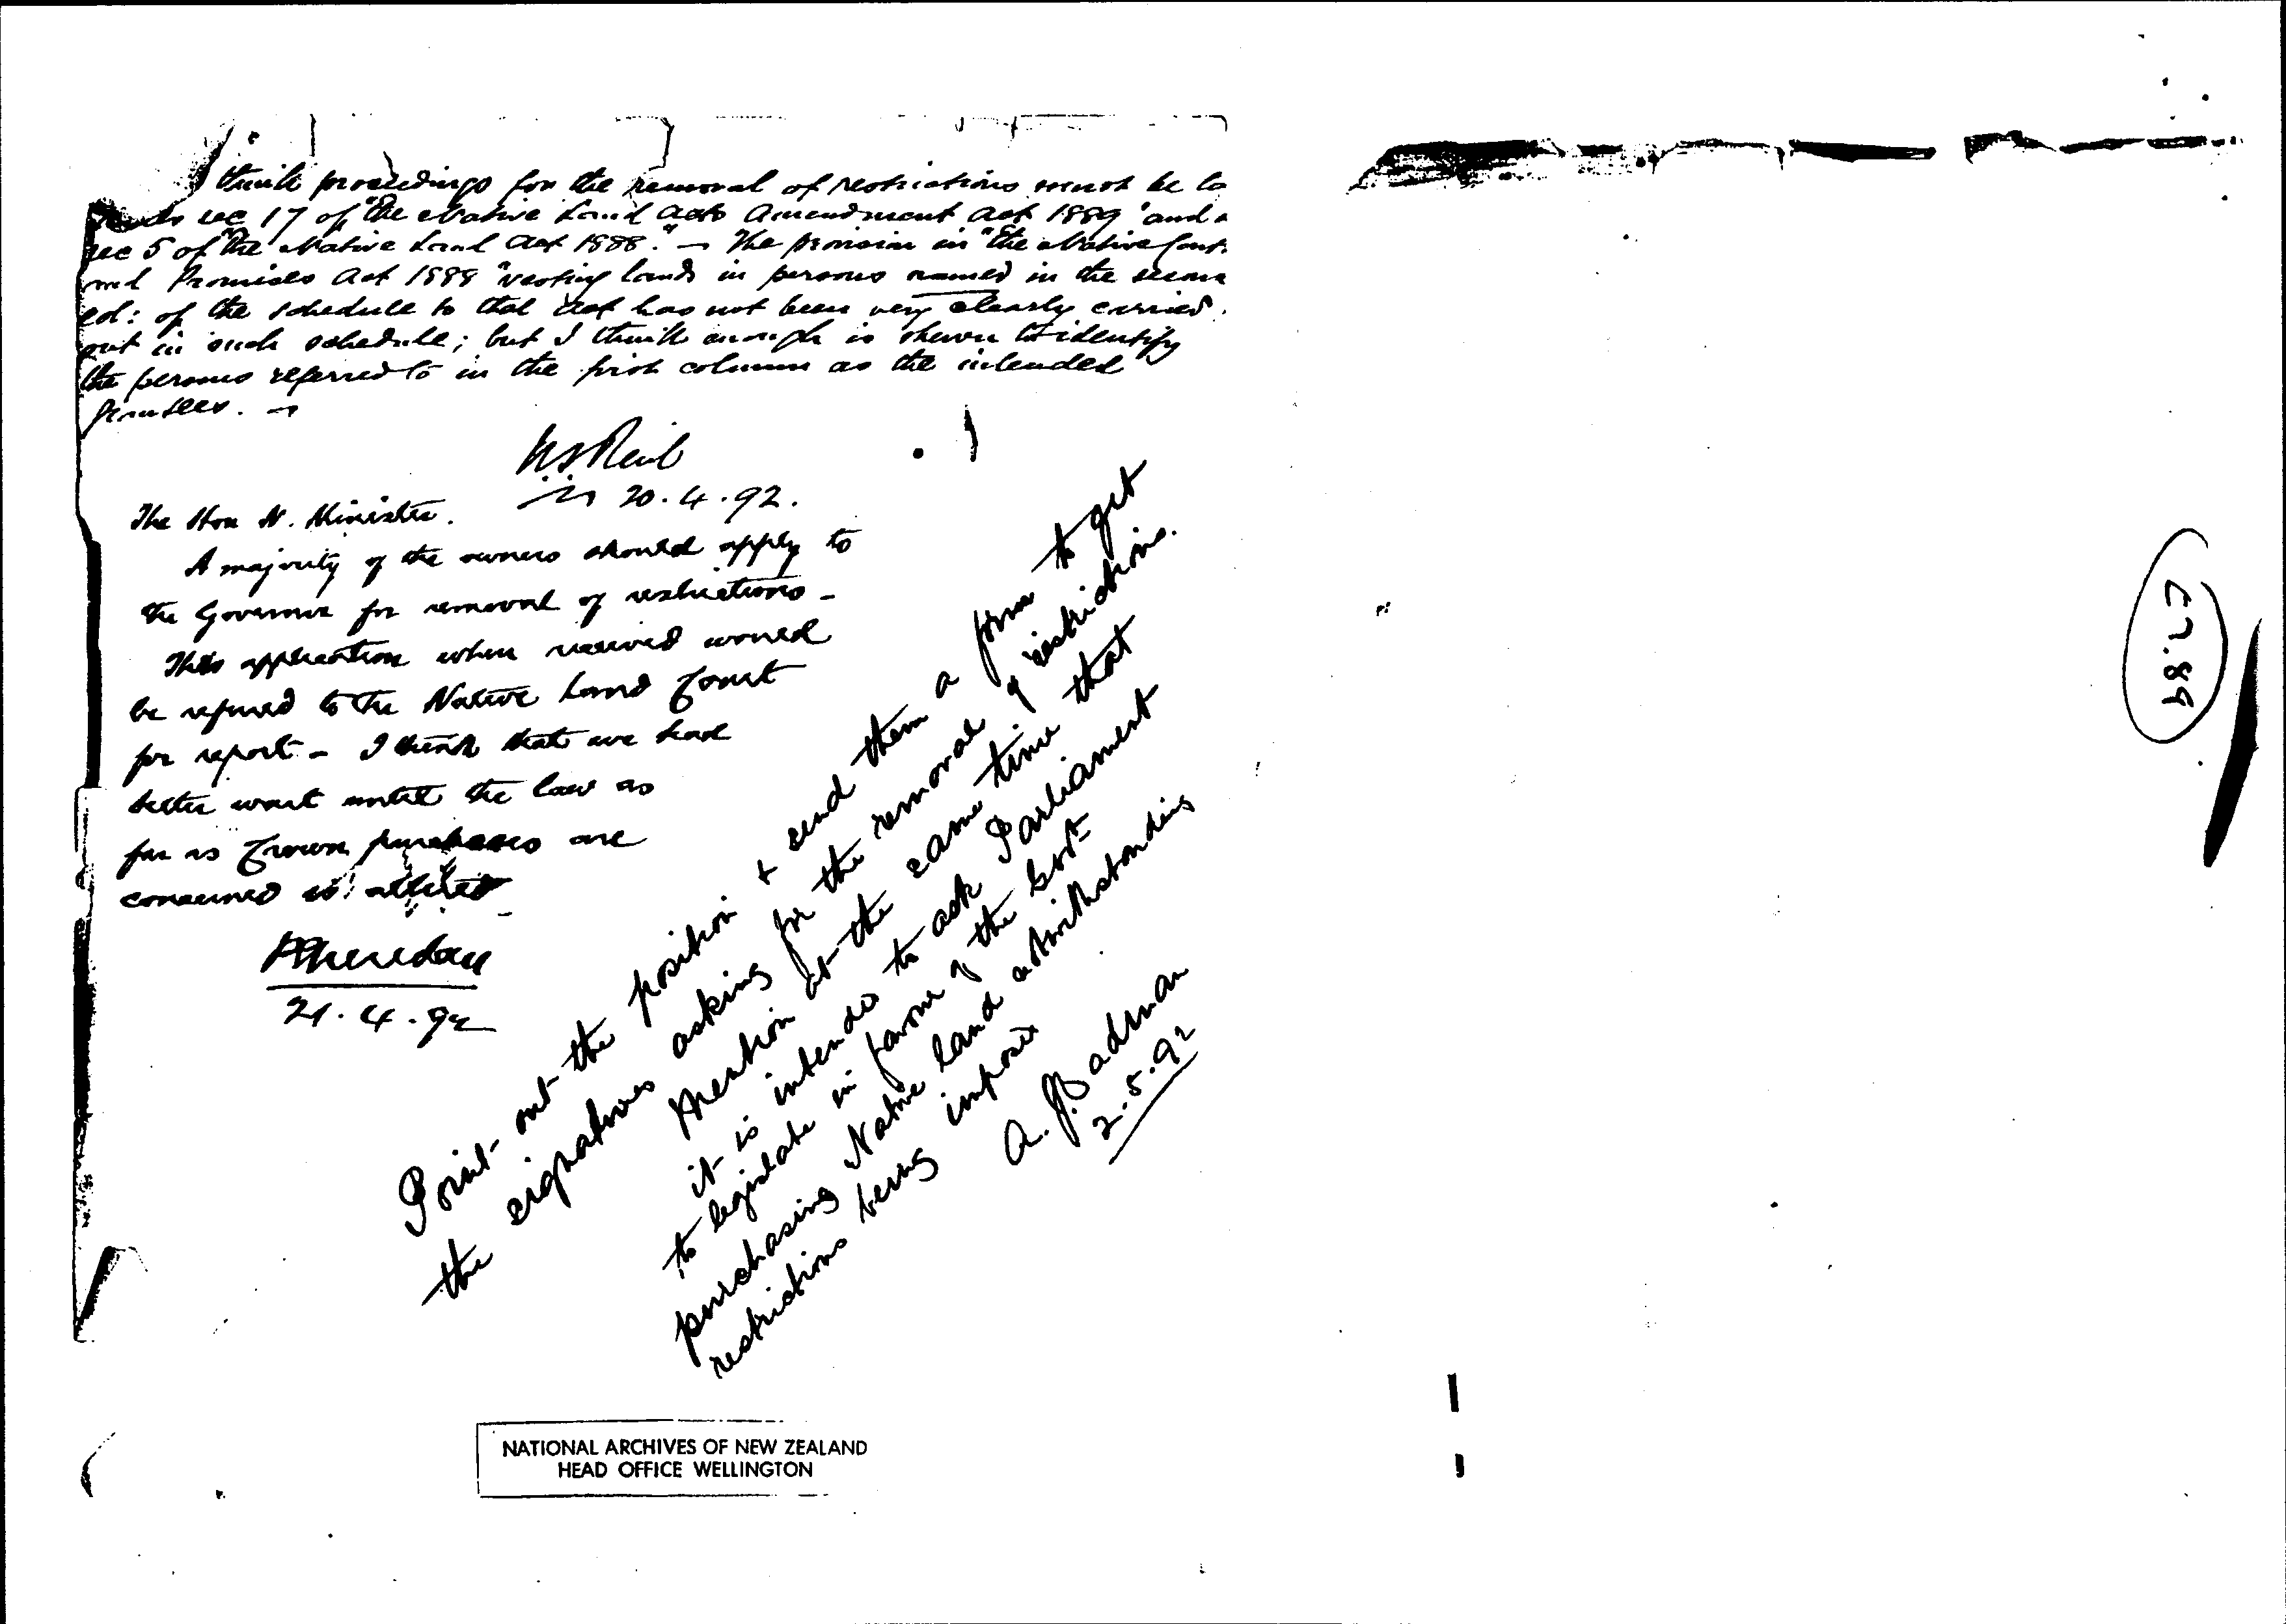 I think proceedings for the removal of restrictions must be
under sec 17 of "the Native Land Acts Amendment Act 1889" and
sec 5 of "The Native Land Act 1888." — The provision in "the Native Cont.
and Promises Act 1888" vesting lands in persons named in the second
col: of the schedule to that Act has not been very clearly carried
out in such schedule; but I think enough is shewn to identify
the persons referred to in the first column as the intended
grantees. —
WSReid
20.4.92.
The Hon N. Minister.
A majority of the owners should apply to
the Governor for removal of restrictions -
This application when received would
be referred to the Native Land Court
for report - I think that we had
better wait until the law as
far as Crown purchases are
concerned is altered
PSheridan
21.4.92
Point out the position & send them a form to get
the signatures asking for the removal of restrictions.
Mention at the same time that
it is intended to ask Parliament
to legislate in favour of the Govt
purchasing Native land notwithstanding
restrictions being imposed
A. J. Cadman
2.5.92
NATIONAL ARCHIVES OF NEW ZEALAND
HEAD OFFICE WELLINGTON